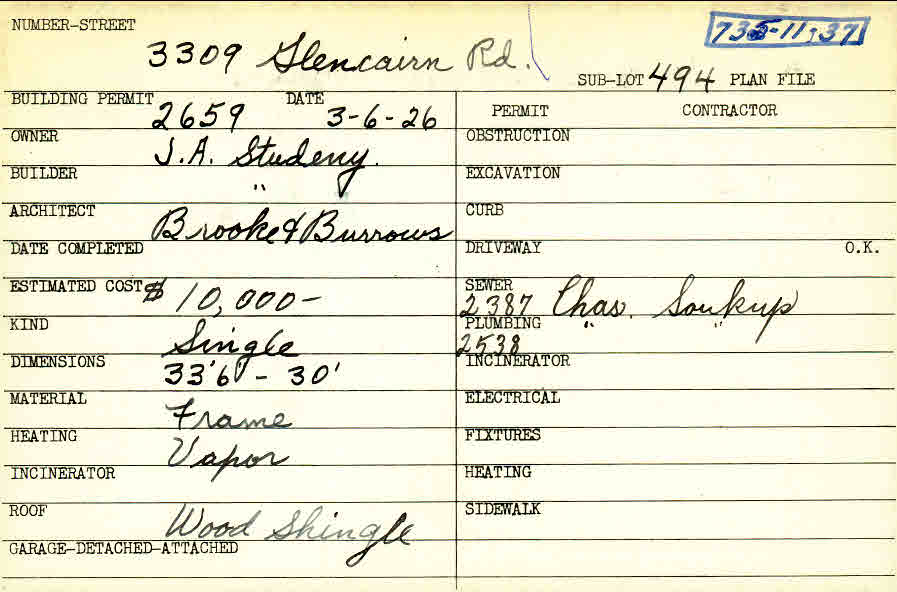 NUMBER-STREET
735-11-37
3309 Glencairn Rd.
SUB-LOT 494 PLAN FILE
BUILDING PERMIT 2659 DATE 3-6-26
PERMIT CONTRACTOR
OWNER J.A. Studeny.
OBSTRUCTION
BUILDER "
EXCAVATION
ARCHITECT Brooke & Burrows
CURB
DATE COMPLETED
DRIVEWAY O.K.
ESTIMATED COST $ 10,000-
SEWER 2387 Chas. Soukup
KIND Single
PLUMBING 2538 " "
DIMENSIONS 33'6" - 30'
INCINERATOR
MATERIAL Frame
ELECTRICAL
HEATING Vapor
FIXTURES
INCINERATOR
HEATING
ROOF Wood Shingle
SIDEWALK
GARAGE-DETACHED-ATTACHED